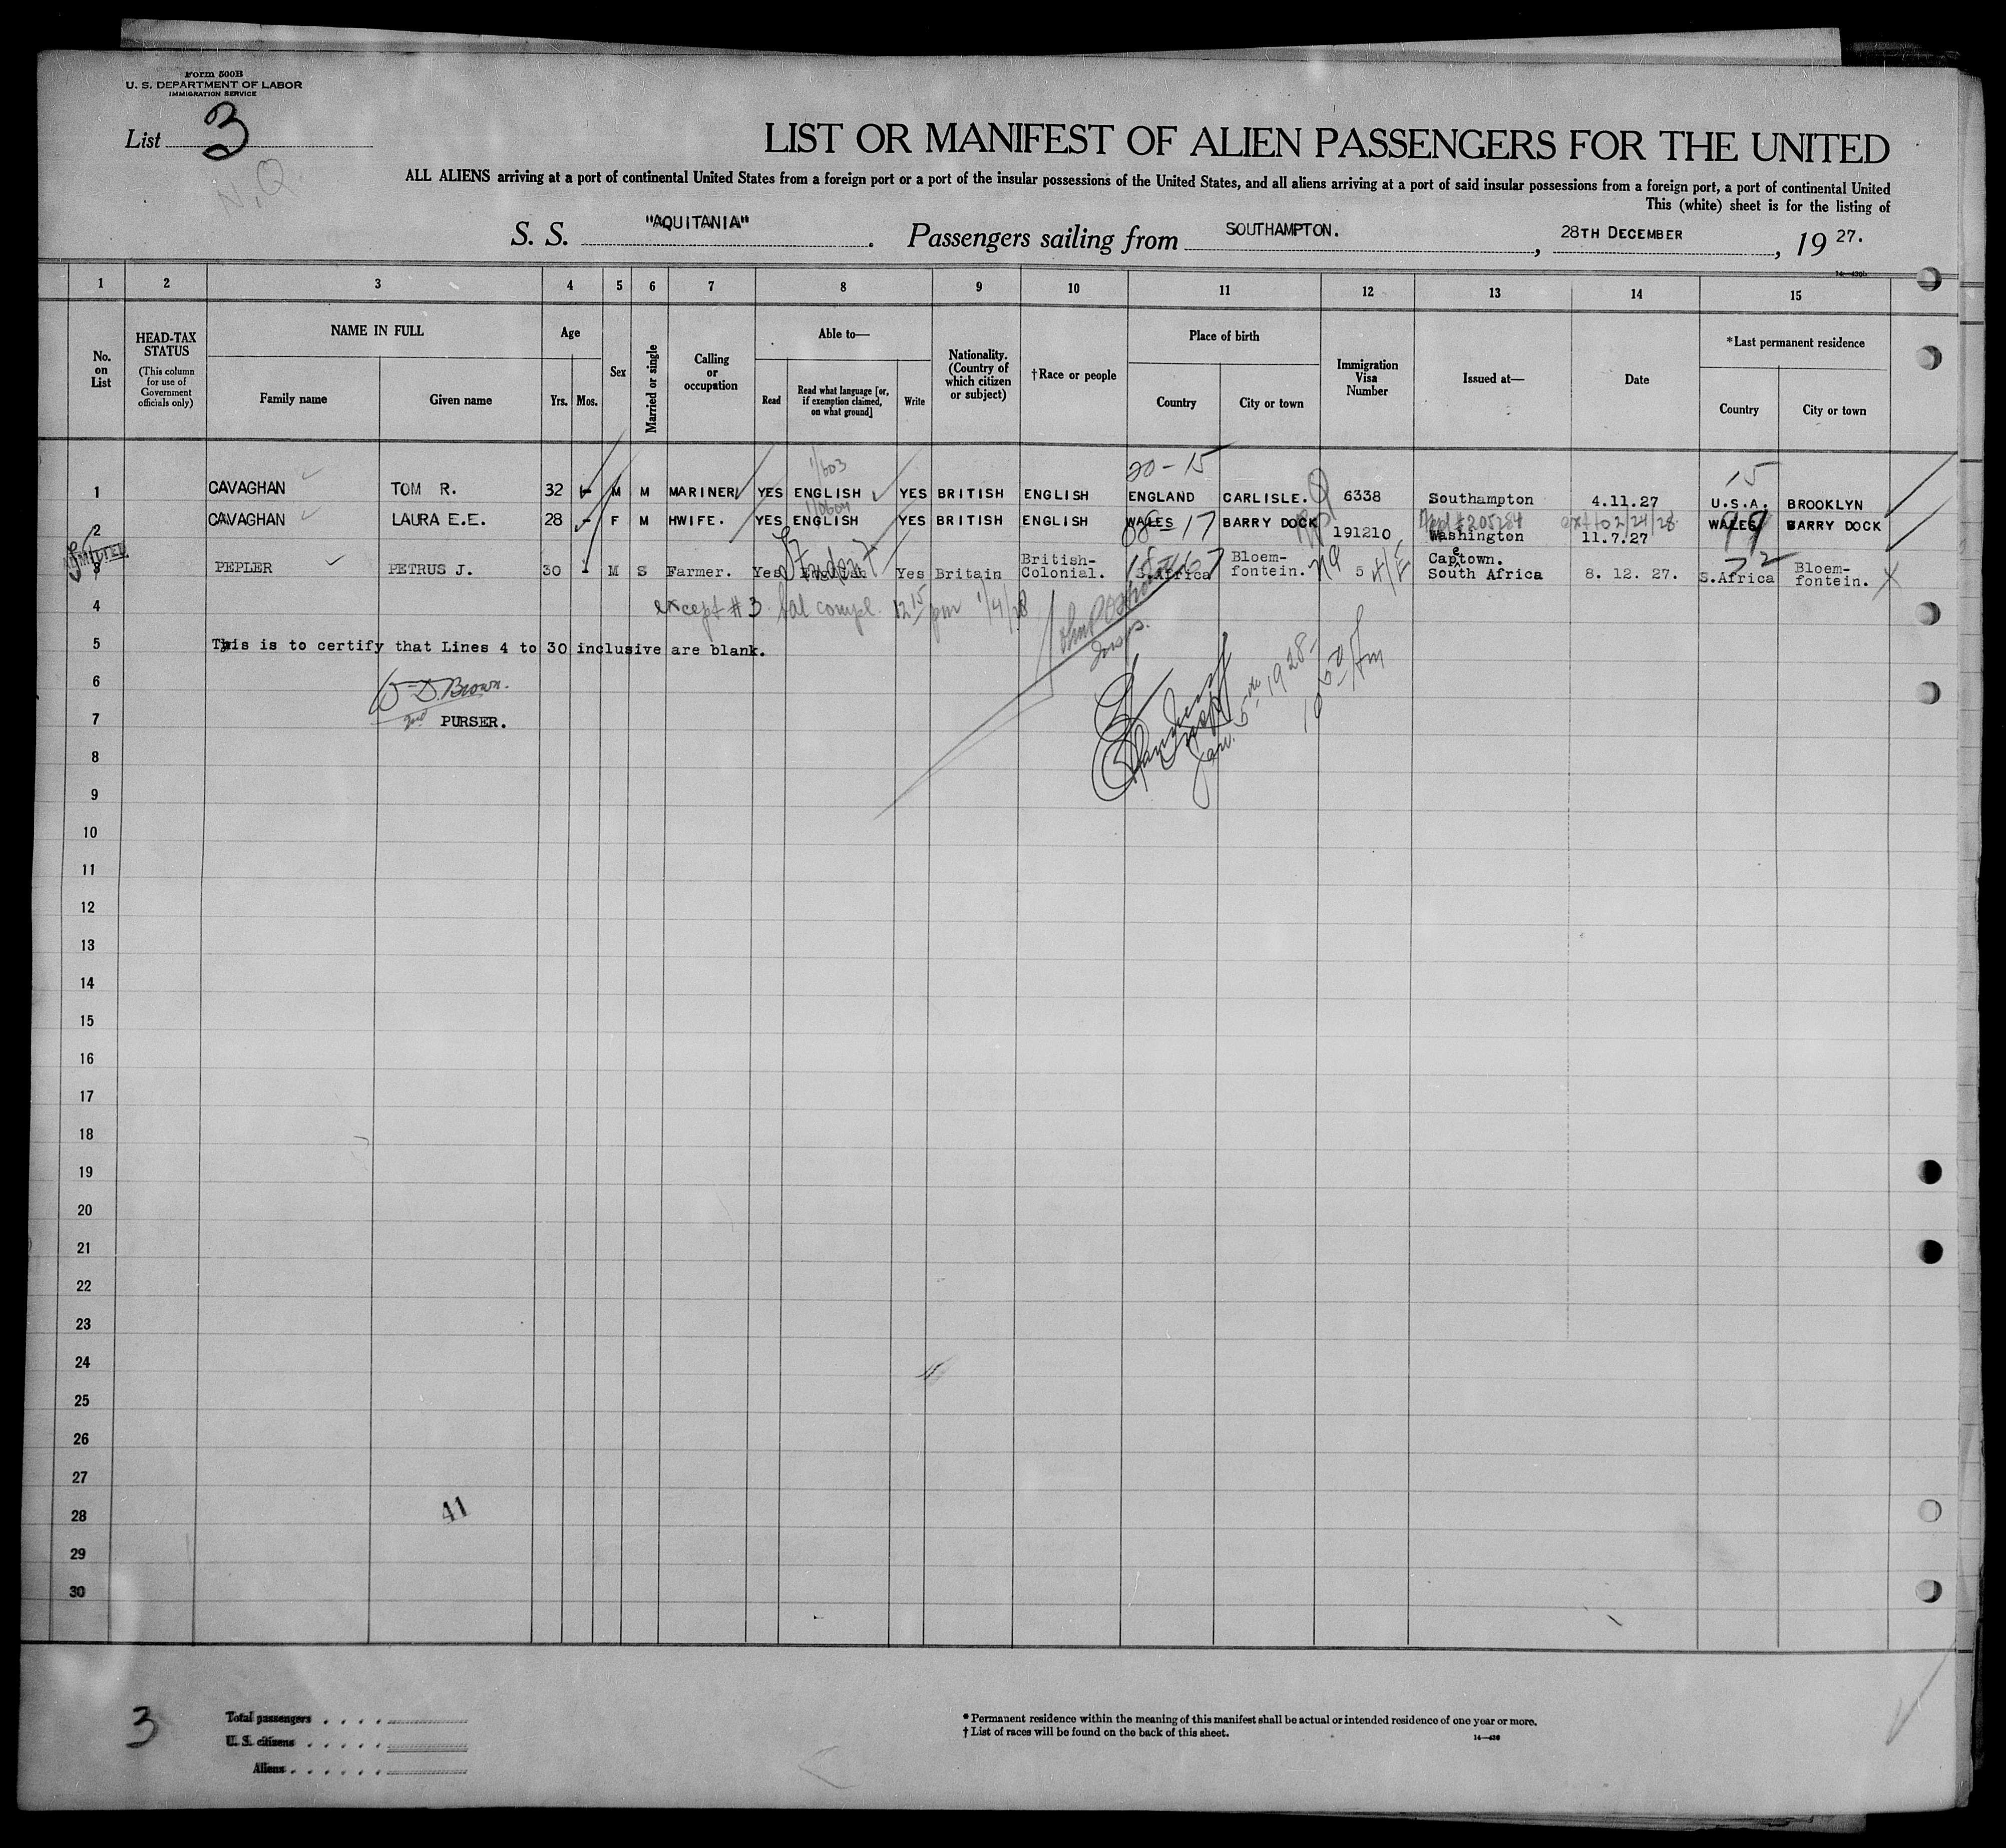 Form 500B
U. S. DEPARTMENT OF LABOR
IMMIGRATION SERVICE
List 3
N.Q.
LIST OR MANIFEST OF ALIEN PASSENGERS FOR THE UNITED
ALL ALIENS arriving at a port of continental United States from a foreign port or a port of the insular possessions of the United States, and all aliens arriving at a port of said insular possessions from a foreign port, a port of continental United
This (white) sheet is for the listing of
S. S. "AQUITANIA" . Passengers sailing from SOUTHAMPTON. , 28TH DECEMBER , 19 27.
14—430b
1 2 3 4 5 6 7 8 9 10 11 12 13 14 15
No. on List
HEAD-TAX STATUS
(This column for use of Government officials only)
NAME IN FULL
Family name Given name
Age
Yrs. Mos.
Sex
Married or single
Calling or occupation
Able to—
Read Read what language [or, if exemption claimed, on what ground] Write
Nationality. (Country of which citizen or subject)
†Race or people
Place of birth
Country City or town
Immigration Visa Number
Issued at—
Date
*Last permanent residence
Country City or town
1/603 20-15 15
1 CAVAGHAN TOM R. 32 - M M MARINER YES ENGLISH YES BRITISH ENGLISH ENGLAND CARLISLE. 6338 Southampton 4.11.27 U.S.A. BROOKLYN
#205284 ext to 2/24/28
2 CAVAGHAN LAURA E.E. 28 - F M HWIFE. YES ENGLISH YES BRITISH ENGLISH WALES 17 BARRY DOCK 191210 Washington 11.7.27 WALES BARRY DOCK
ADMITTED
Student
3 PEPLER PETRUS J. 30 M S Farmer. Yes English Yes Britain British-Colonial. S.Africa Bloem-fontein. 5 Capetown. South Africa 8. 12. 27. S.Africa Bloem-fontein. X
4 except #3 compl. 12 15 pm 1/4/28
5 This is to certify that Lines 4 to 30 inclusive are blank.
Insp.
6 D. Brown.
7 2nd PURSER.
Jan. 5th 1928-
8
9
10
11
12
13
14
15
16
17
18
19
20
21
22
23
24
25
26
27
28
41
29
30
3
Total passengers
U. S. citizens
Aliens
* Permanent residence within the meaning of this manifest shall be actual or intended residence of one year or more.
† List of races will be found on the back of this sheet.
14—430